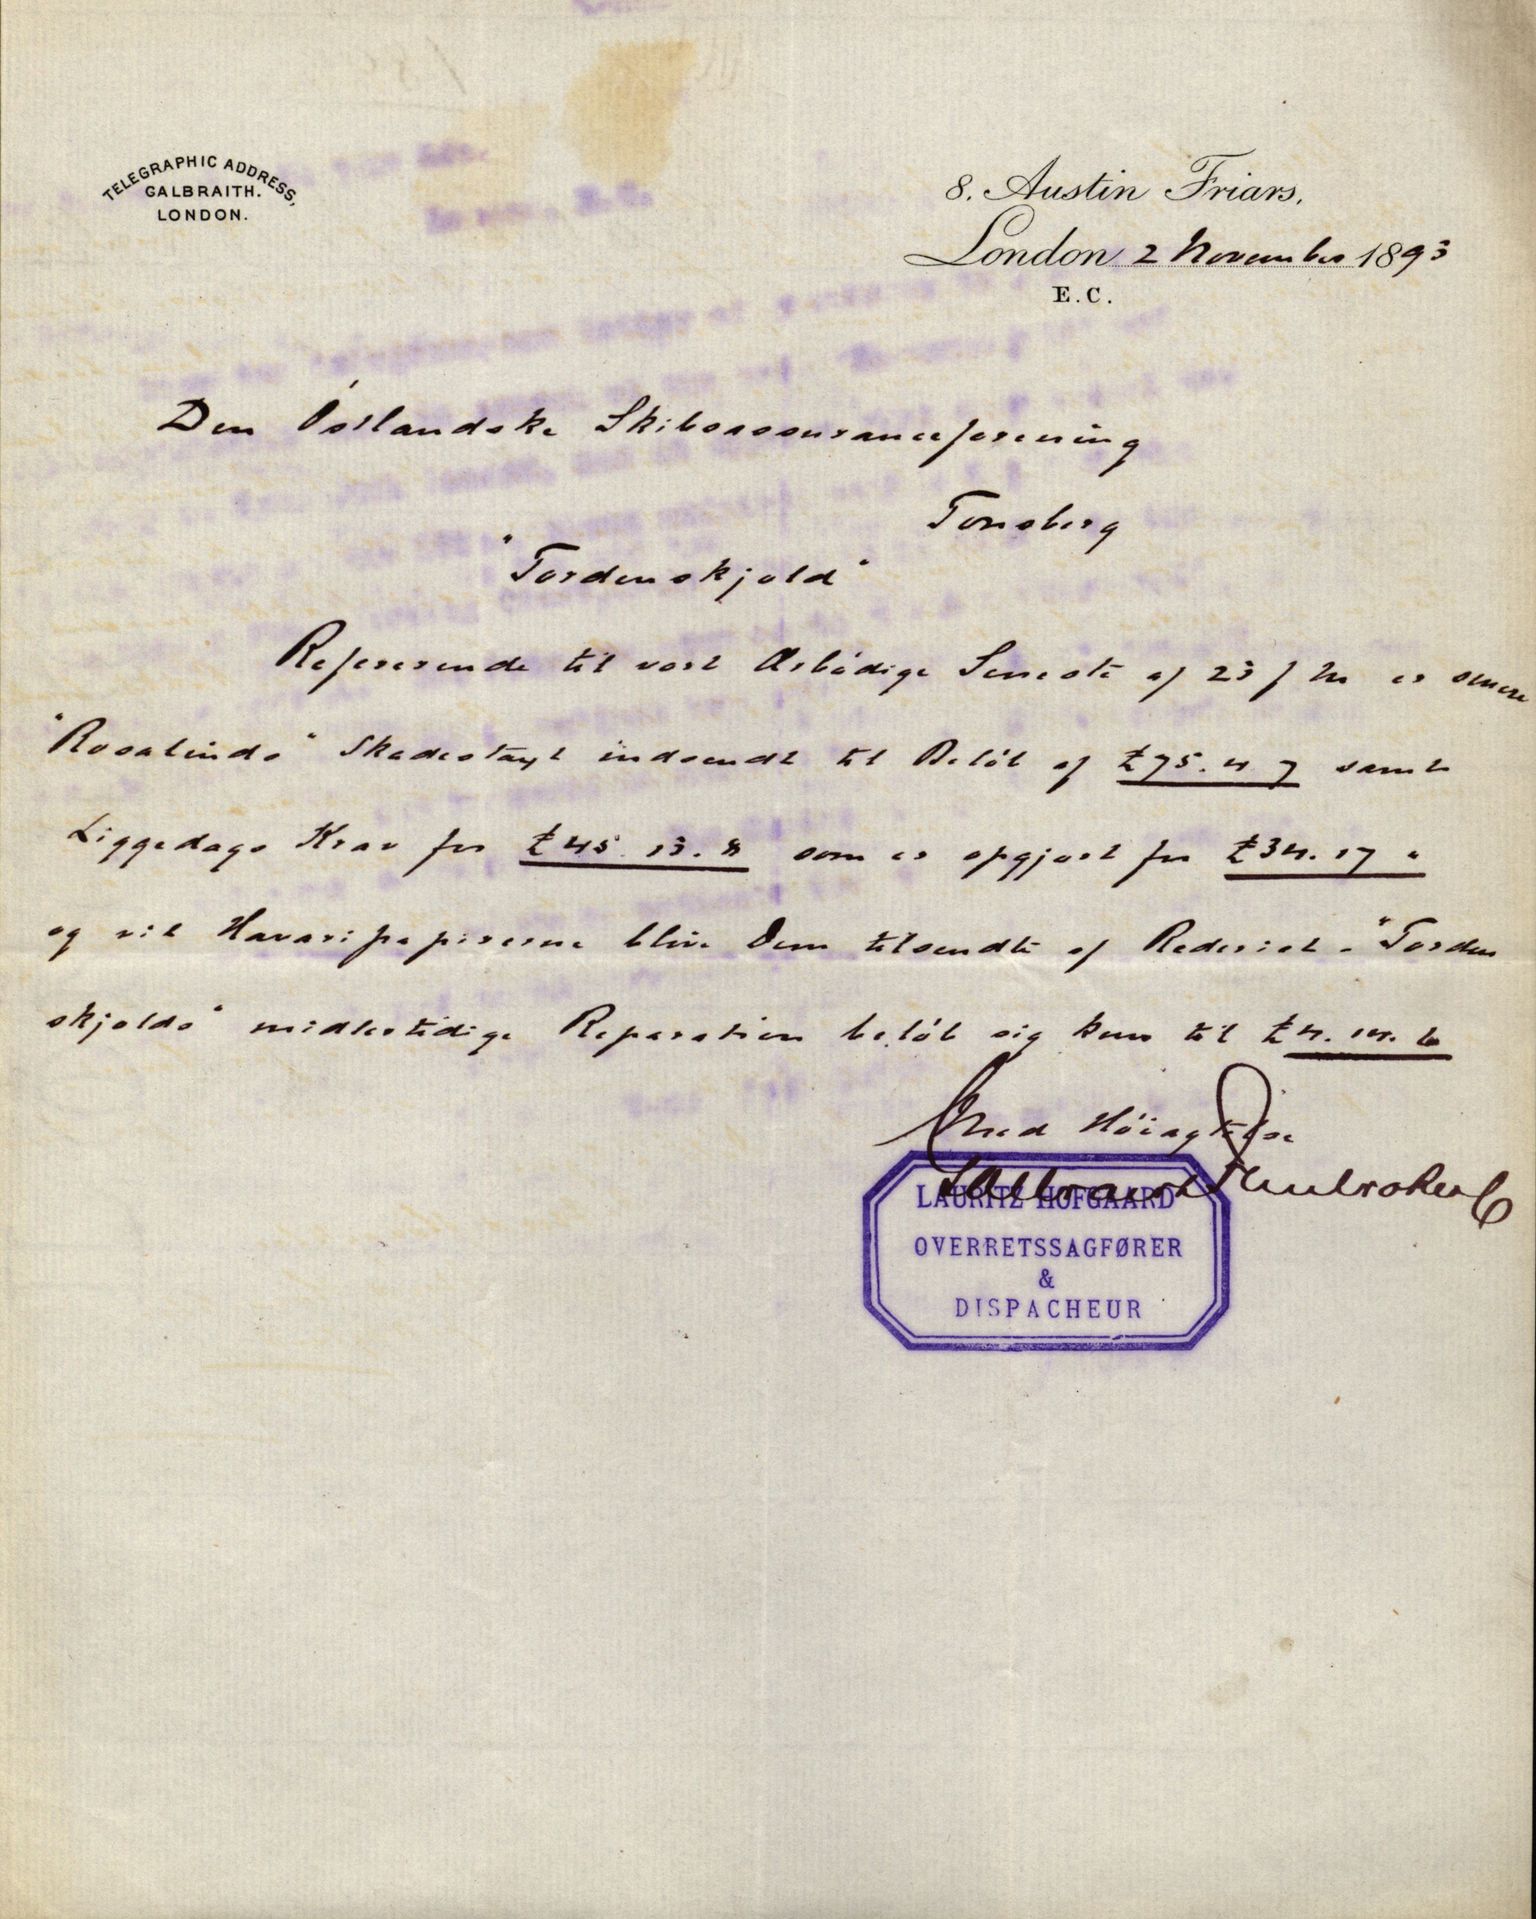 TELEGRAPHIC ADDRESS,
GALBRAITH.
LONDON.
8. Austin Friars,
London 2 November 1893
E.C.
Den Östlandske Skibsassuranceforening
Tonsberg
"Tordenskjold"
Refererende til vort Ærbödige Seneste af 23 f M er senere
"Rosalinds" Skadestaxt indsendt til Belöb af £75. 4. 7 samt
Liggedags Krav for £45. 13. 8 som er opgjort for £34. 17 "
og vil Havaripapirerne blive Dem tilsendte af Rederiet. "Torden
skjolds" midlertidige Reparation belöb sig kun til £4. 14. 6
Med Höiagtelse
Galbraith Pembroke & Co
LAURITZ HOFGAARD
OVERRETSSAGFØRER
&
DISPACHEUR